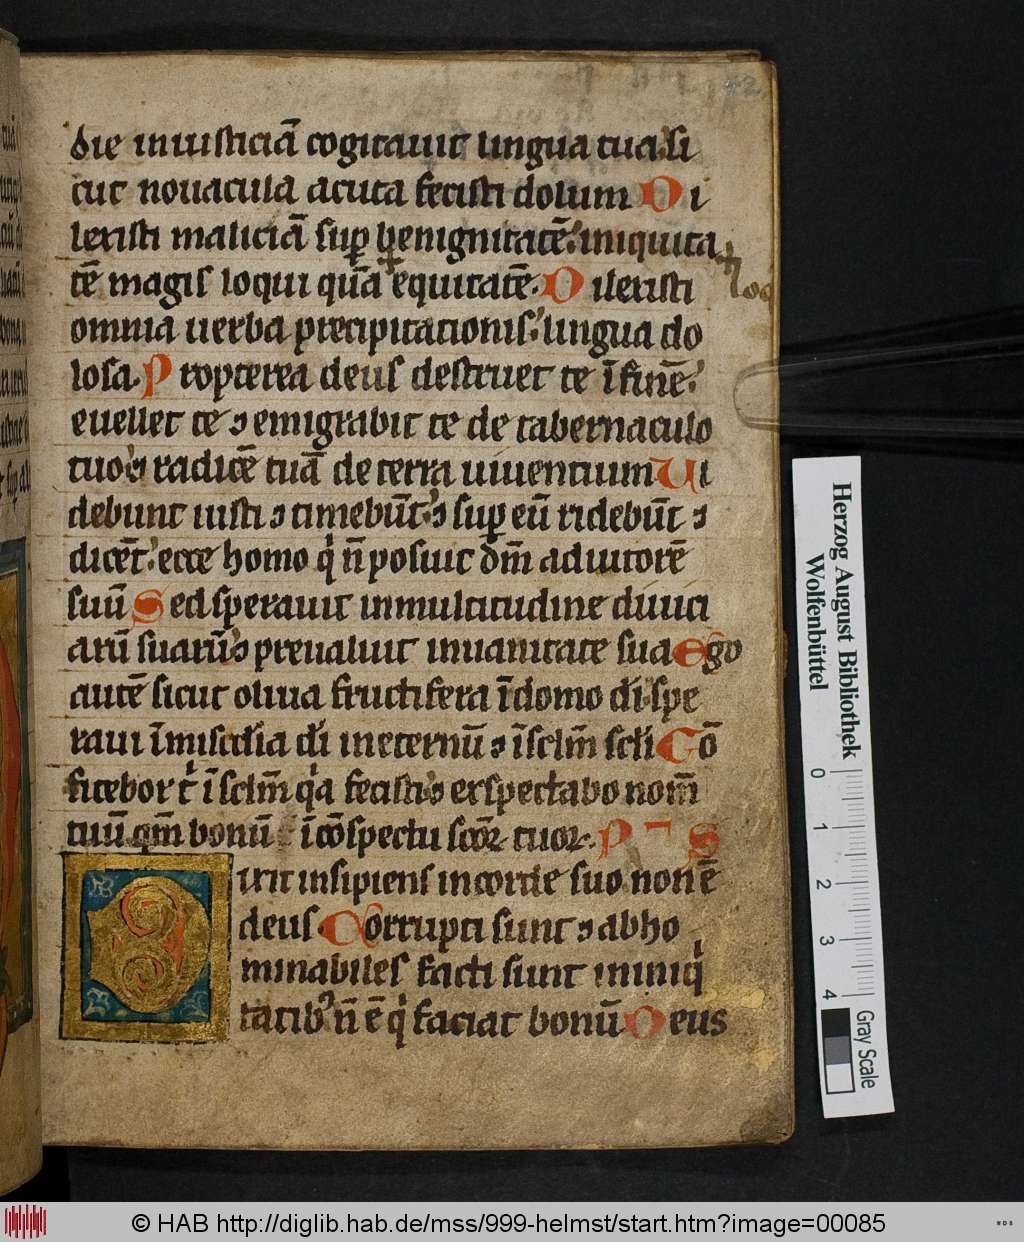 42
die iniusticiā cogitauit lingua tua. si
cut nouacula acuta fecisti dolum Di
lexisti maliciā suꝑ benignitatē. iniquita
tē magis loqui quā equitatē. Dilexisti
loq
omnia uerba precipitationis. lingua do
losa. Propterea deus destruet te ī finē.
euellet te ⁊ emigrabit te de tabernaculo
tuo. ⁊ radicē tuā de terra uiuentium Ui
debunt iusti ⁊ timebūt. ⁊ suꝑ eū ridebūt ⁊
dicēt. ecce homo qͥ n̄ posuit dm̄ adiutorē
suū Sed sperauit in multitudine diuici
arū suarū. ⁊ preualuit in uanitate sua Ego
autē sicut oliua fructifera ī domo di. spe
raui ī miscd̄ia di in eternū ⁊ ī sclm̄ scli Cō
fitebor tͥ ī sclm̄ qͥa fecisti. ⁊ exspectabo nom̄
tuū qm̄ bonū ī cōspectu scōꝝ tuoꝝ. PS
Dixit insipiens in corde suo non ē
deus. Corrupti sunt ⁊ abho
minabiles facti sunt in iniqͥ
tatibꝰ n̄ ē qͥ faciat bonū Deus
Herzog August Bibliothek
Wolfenbüttel
0 1 2 3 4
Gray Scale
© HAB http://diglib.hab.de/mss/999-helmst/start.htm?image=00085